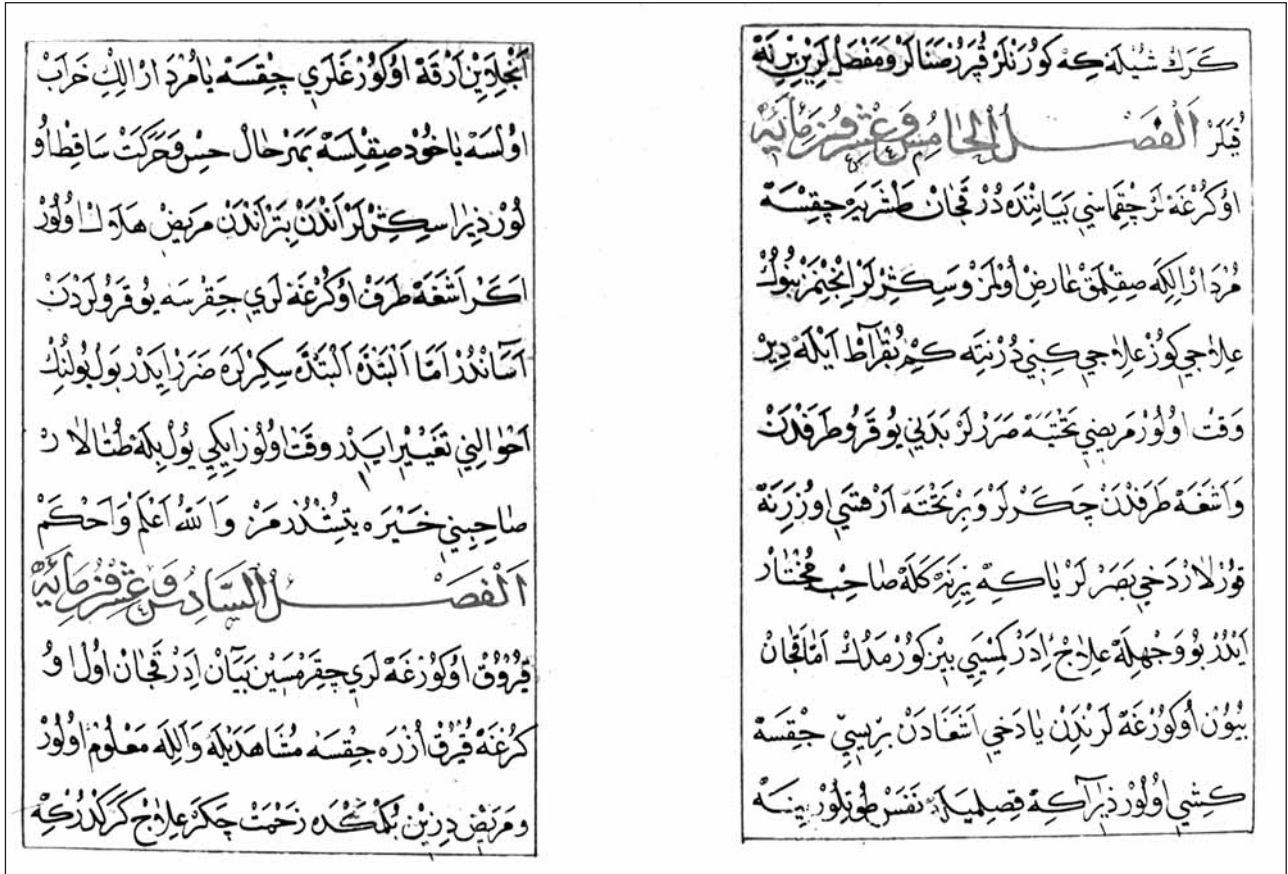 كَرَكْ شُيْلَهْ كِهْ كُورَنْلَرْ قُپَرْ صَنَالَرْ وَمَفْصَلْلَرِينْ بِرْ يَنَهْ
قُيَلَرْ اَلْفَصْلُ الْخَامِسُ وَعِشْرُونَ
اوُكُرْغَهْ لَرْ چِقْمَاسِي بَيَانِنْدَهْ دُرْ قَچَانْ طَشَرَيَهْ چِقْسَهْ
مُرْدَارْ اِلِكَهْ صِقِلْمَقْ عَارِضْ اُولْمَزْ وَسِكِرْلَرْ اِنْجِنْمَزْ بُنُوكْ
عِلَاجِي كُوزْ عِلَاجِي كِبِي دُرْ نِتَه كِمْ بُقْرَاطْ اَيْلَهْ دِيرْ
وَقْتْ اوُلُورْ مَرِيضِي تَخْتَيَهْ صَرَرْلَرْ بَدَنِي يُوقَرُو طَرَفْدَنْ
وَاَشَغَهْ طَرَفْدَنْ چَكَرْلَرْ وَبِرْ تَخْتَهْ اَرْقَسِي اوُزَرِنَهْ
قُورْلَارْ دَخِي بَصَرْلَرْ يَا كِهْ يِرِنَهْ كَلَهْ صَاحِبْ مُخْتَارْ
اَيْدُرْ بُو وَجْهِلَهْ عِلَاجْ اِدَرْ كِمْسَيِي بِيزْ كُورْمَدُكْ اَمَّا قَچَانْ
بُيُونْ اُوكُورْغَهْ لَرِنْدَنْ يَا دَخِي اَشَغَادَنْ بِرِيسِي چِقْسَهْ
كِشِي اوُلُورْ ذِيرَا كِهْ قِصِلْمَيْلَهْ نَفَسْ طُوتِلُورْ يِينَهْ
اَنْجِلَايِنْ اَرْقَهْ اوُكُورْغَلَرِي چِقْسَهْ يَا مُرْدَارْ اِلِكْ خَرَابْ
اوُلْسَهْ يَاخُودْ صِقِلْسَهْ بَهَرْحَالْ حِسْ وَحَرَكَتْ سَاقِطْ اوُ
لُورْ ذِيرَا سِكِرْلَرْ اَنْدَنْ بِتَرْ اَنْدَنْ مَرِيضْ هَلَاكْ اوُلُورْ
اَكَرْ اَشَغَهْ طَرَفْ اوُكُرْغَهْ لَرِي چِقَرْسَه يُوقَرُولَرْدَنْ
اَسَانْدُرْ اَمَّا اَلْبَتْدَهْ اَلْبَتْدَهْ سِكِرْلَرَهْ ضَرَرْ اِيدَرْ بَوْل يُولُنُكْ
اَحْوَالِنِي تَغْيِيرْ اِيدَرْ وَقْتْ اوُلُورْ اِيكِي يُولْ بِلَهْ طُتَالَارْ
صَاحِبِينِي خَيْرَه يِتِشْدُرْمَزْ وَاَللّٰهُ اَعْلَمُ وَاَحْكَمْ
اَلْفَصْلُ السَّادِسُ وَعِشْرُونَ
قُيْرُوقْ اوُكُورْغَهْ لَرِي چِقَرْمَسِينْ بَيَانْ اِدَرْ قَچَانْ اوُلْ اوُ
كُرْغَهْ قُيْرُقْ اُزْرَه چِقْسَه مُشَاهَدَيْلَهْ وَاَلِلَهْ مَعْلُومْ اوُلُورْ
وَمَرِيضْ دِزِينْ بُكْمَكْدَه زَحْمَتْ چَكَرْ عِلَاجْ كَرَكْدُرْ كِهْ